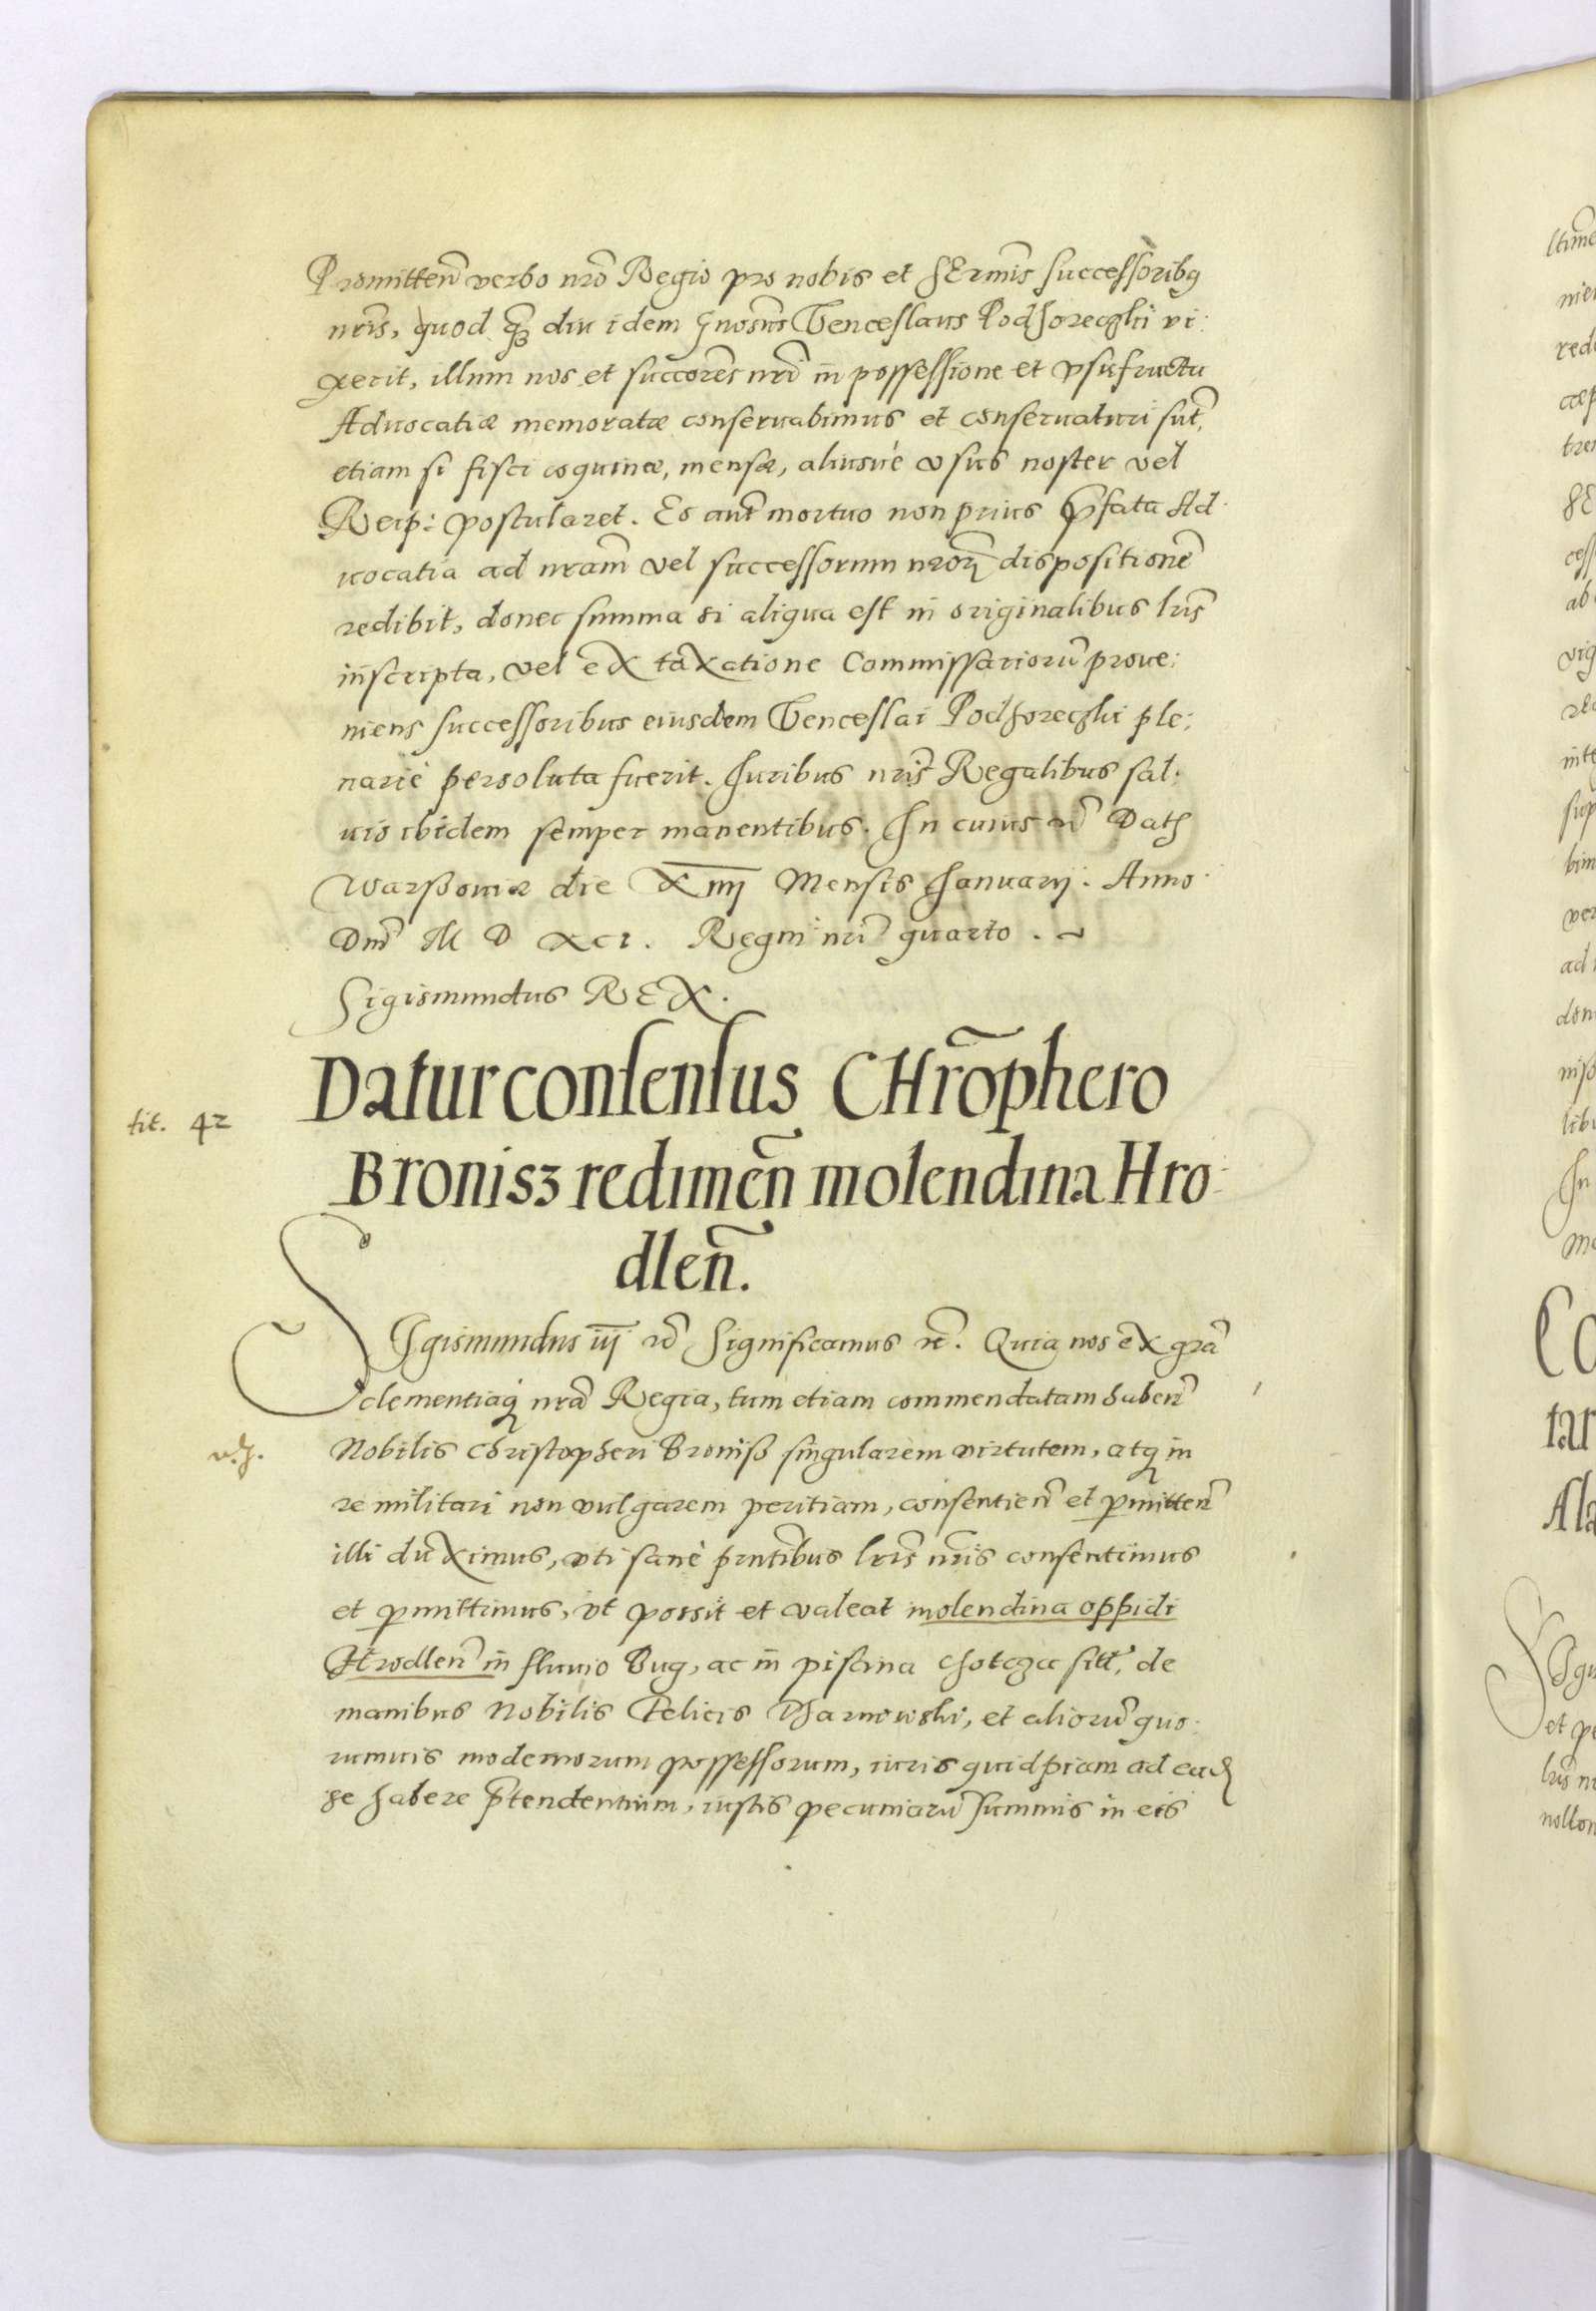 Promitteñ verbo nrõ Regio pro nobis et SErmis successoribq
nris, quod q̃ȝ diu idem Gnosus Venceslaus Podhoreczki vi:
xerit, illum nos et succores nri in possessione et vsufructu
Aduocatiæ memoratæ conseruabimus et conseruaturi sut,
etiam si fisci coquinæ, mensæ, aliusuè vsus noster vel
Reip: postularet. Eo aut mortuo non prius p̃fata Ad:
uocatia ad nram vel successorum nrorꝝ dispositione
redibit, donec summa si aliqua est in originalibus lris
inscripta, vel ex taxatione Commissariorũ proue:
niens successoribus eiusdem Venceslai Podhoreczki ple:
nariè persoluta fuerit. Iuribus nris Regalibus sal:
uis ibidem semper manentibus. In cuius rẽ Datȝ
Warssouiæ die XIIII Mensis Ianuarij. Anno
Dni M D XCI. Regni nri quarto. ~
Sigismundus REX.
Datur consensus CHrõphero
tit. 42
Bronisz redimeñ molendina Hro:
dleñ.
SIgismundus iij rẽ Significamus rẽ. Quia nos ex gra
clementiaqꝫ nra Regia, tum etiam commendatam habeñ
Nobilis Christopheri Broniss singularem virtutem, atqꝫ in
re militari non vulgarem peritiam, consentieñ et ꝑmitteñ
illi duximus, vti sanè pntibus lris nris consentimus
et ꝑmittimus, vt possit et valeat molendina oppidi
Hrodleñ in fluuio Bug, ac in piscina Chotcza sitt, de
manibus Nobilis Felicis Dharnowski, et aliorũ quo:
rumuis modernorum possessorum, iuris quidpiam ad ead
se habere p̃tendentium, iustis pecuniarũ summis in eis